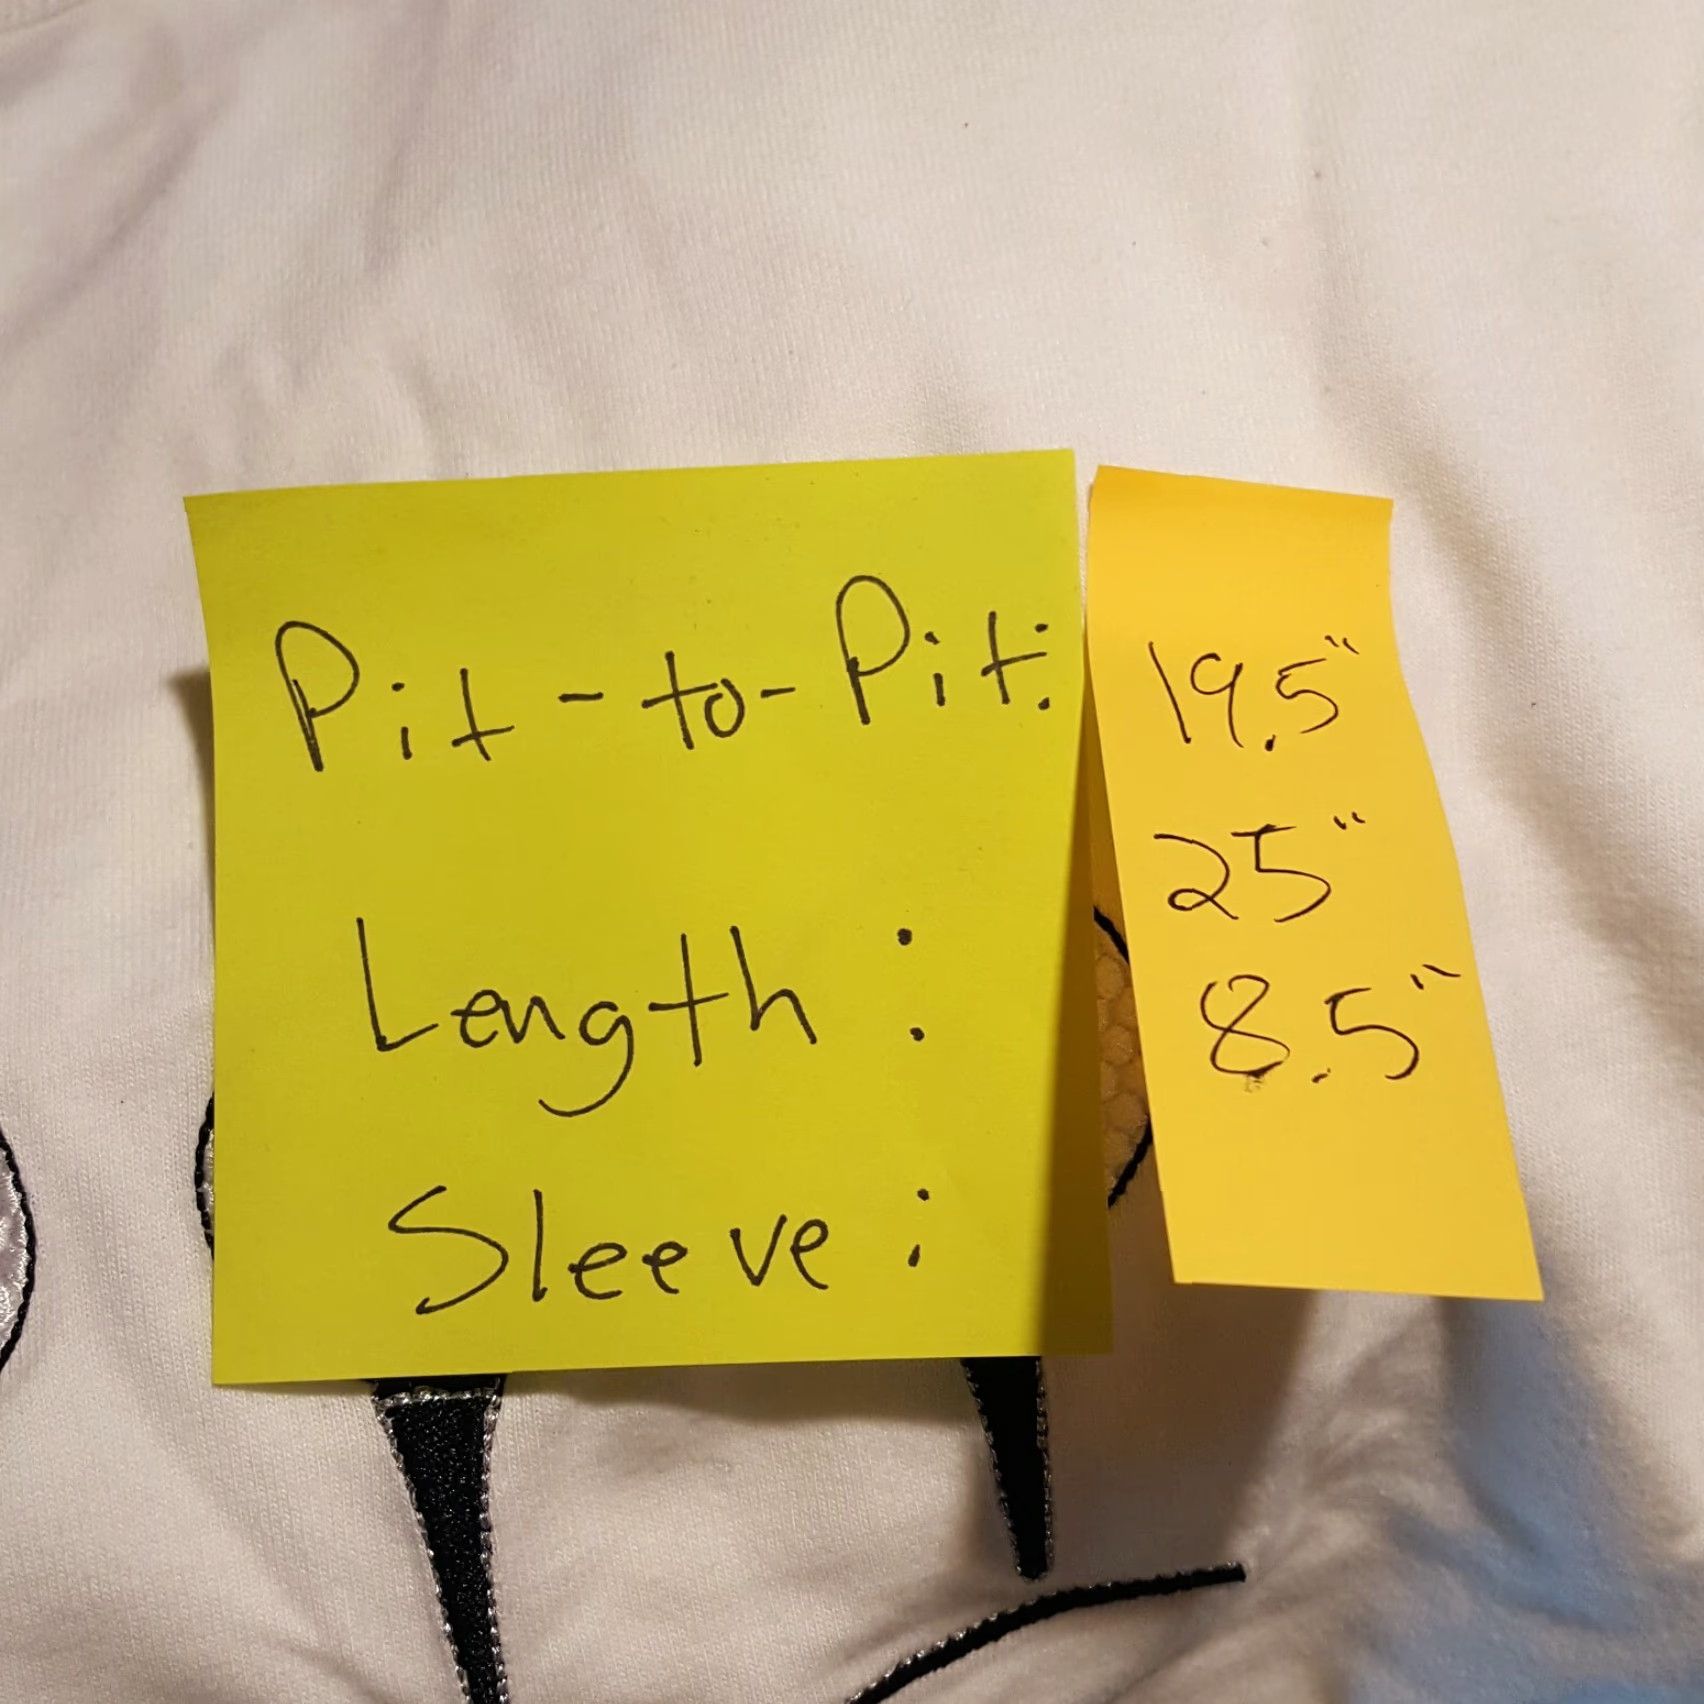 Pit-to-Pit: 19.5"
Length: 25"
Sleeve: 8.5"